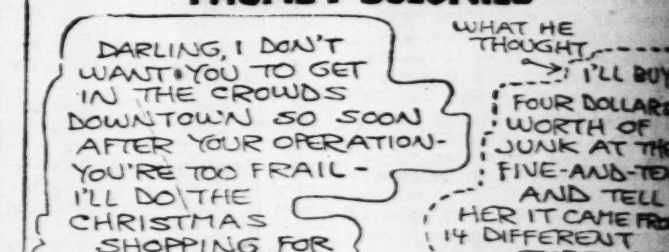 DARLING, I DON'T
WANT YOU TO GET
IN THE CROWDS
DOWNTOWN SO SOON
AFTER YOUR OPERATION-
YOU'RE TOO FRAIL-
I'LL DO THE
CHRISTMAS
SHOPPING FOR
WHAT HE
THOUGHT
I'LL BUY
FOUR DOLLAR
WORTH OF
JUNK AT TH
FIVE-AND-TE
AND TELL
HER IT CAME FR
14 DIFFERENT